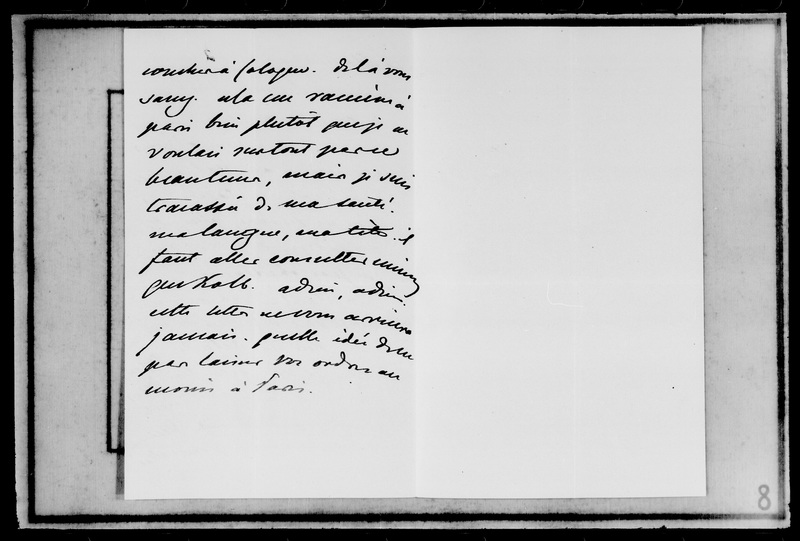 coucher à Cologne. de là vous
. cela me ramène à
paris bien plutôt que je ne
voulais surtout par ce
beau tems, mais je suis
tracassé de ma santé.
ma langue, ma tête. il
faut aller consulter
Kolb. adieu, adieu.
cette lettre ne vous arrivera
jamais. quelle idée de ne
pas laisser vos ordres au
moins à Paris.
8